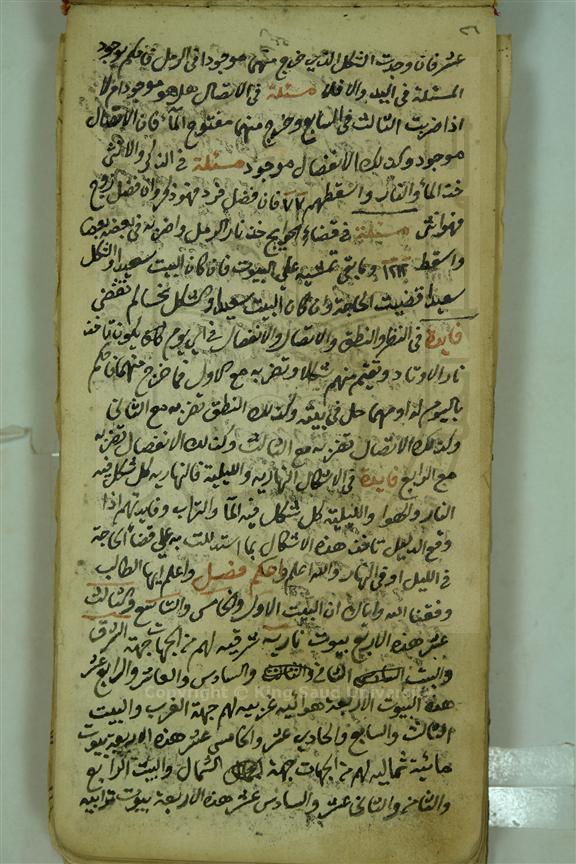 عشر فان وجدت الشكل الذي خرج منهم موجودا في الرمل فاحكم بوجود
المسئلة في اليد والا فلا مسئلة في الاتصال هل هو موجود ام لا
اذا ضربت الثالث في السابع وخرج منهما مفتوح الماء فان الاتصال
موجود وكذلك الانفصال موجود مسئلة في الذكر والانثى
خذ الماء والنار واسقطهم ٧٧ فان فضل فرد فهو ذكر وان فضل زوج
فهو انثى مسئلة في قضاء الحوايج خذ نار الرمل واضربه في بعضه بعضا
واسقط ١٢ ١٢ وما بقي تمشيه على البيوت فان كان البيت سعيد او الشكل
سعيدا قضيت الحاجة وان كان البيت سعيد والشكل نحسا لم تقضى
فايدة في النظر والنطق والاتصال والانفصال في اي يوم كان يكون تاخذ
نار الاوتاد وتقيم منهم شكلا وتضربه مع الاول فما خرج منهما فاحكم
باليوم له او مهما حل في بيته وكذلك النطق تضربه مع الثاني
وكذلك الاتصال تضربه مع الثالث وكذلك الانفصال تضربه
مع الرابع فايدة في الاشكال النهارية والليلية فالنهاريه كل شكل فيه
النار والهوا والليلية كل شكل فيه الماء والتراب وفايدتهم اذا
وقع الدليل تاخذ هذه الاشكال بما استدللت به على قضاء الحاجة
في الليل او في النهار والله اعلم واحكم فصل واعلم ايها الطالب
وفقنا الله واياك ان البيت الاول والخامس والتاسع والثالث
عشر هذه الاربع بيوت ناريه شرقيه لهم من الجهات جهة الشرق
والبيت الثاني والسادس والعاشر والرابع عشر
هذه البيوت الاربعة هوائيه غربيه لهم جهة الغرب والبيت
الثالث والسابع والحادي عشر والخامس عشر هذه الاربعة بيوت
مائية شماليه لهم من الجهات جهة الشمال والبيت الرابع
والثامن والثاني عشر والسادس عشر هذه الاربعة بيوت ترابيه
Copyright © King Saud University